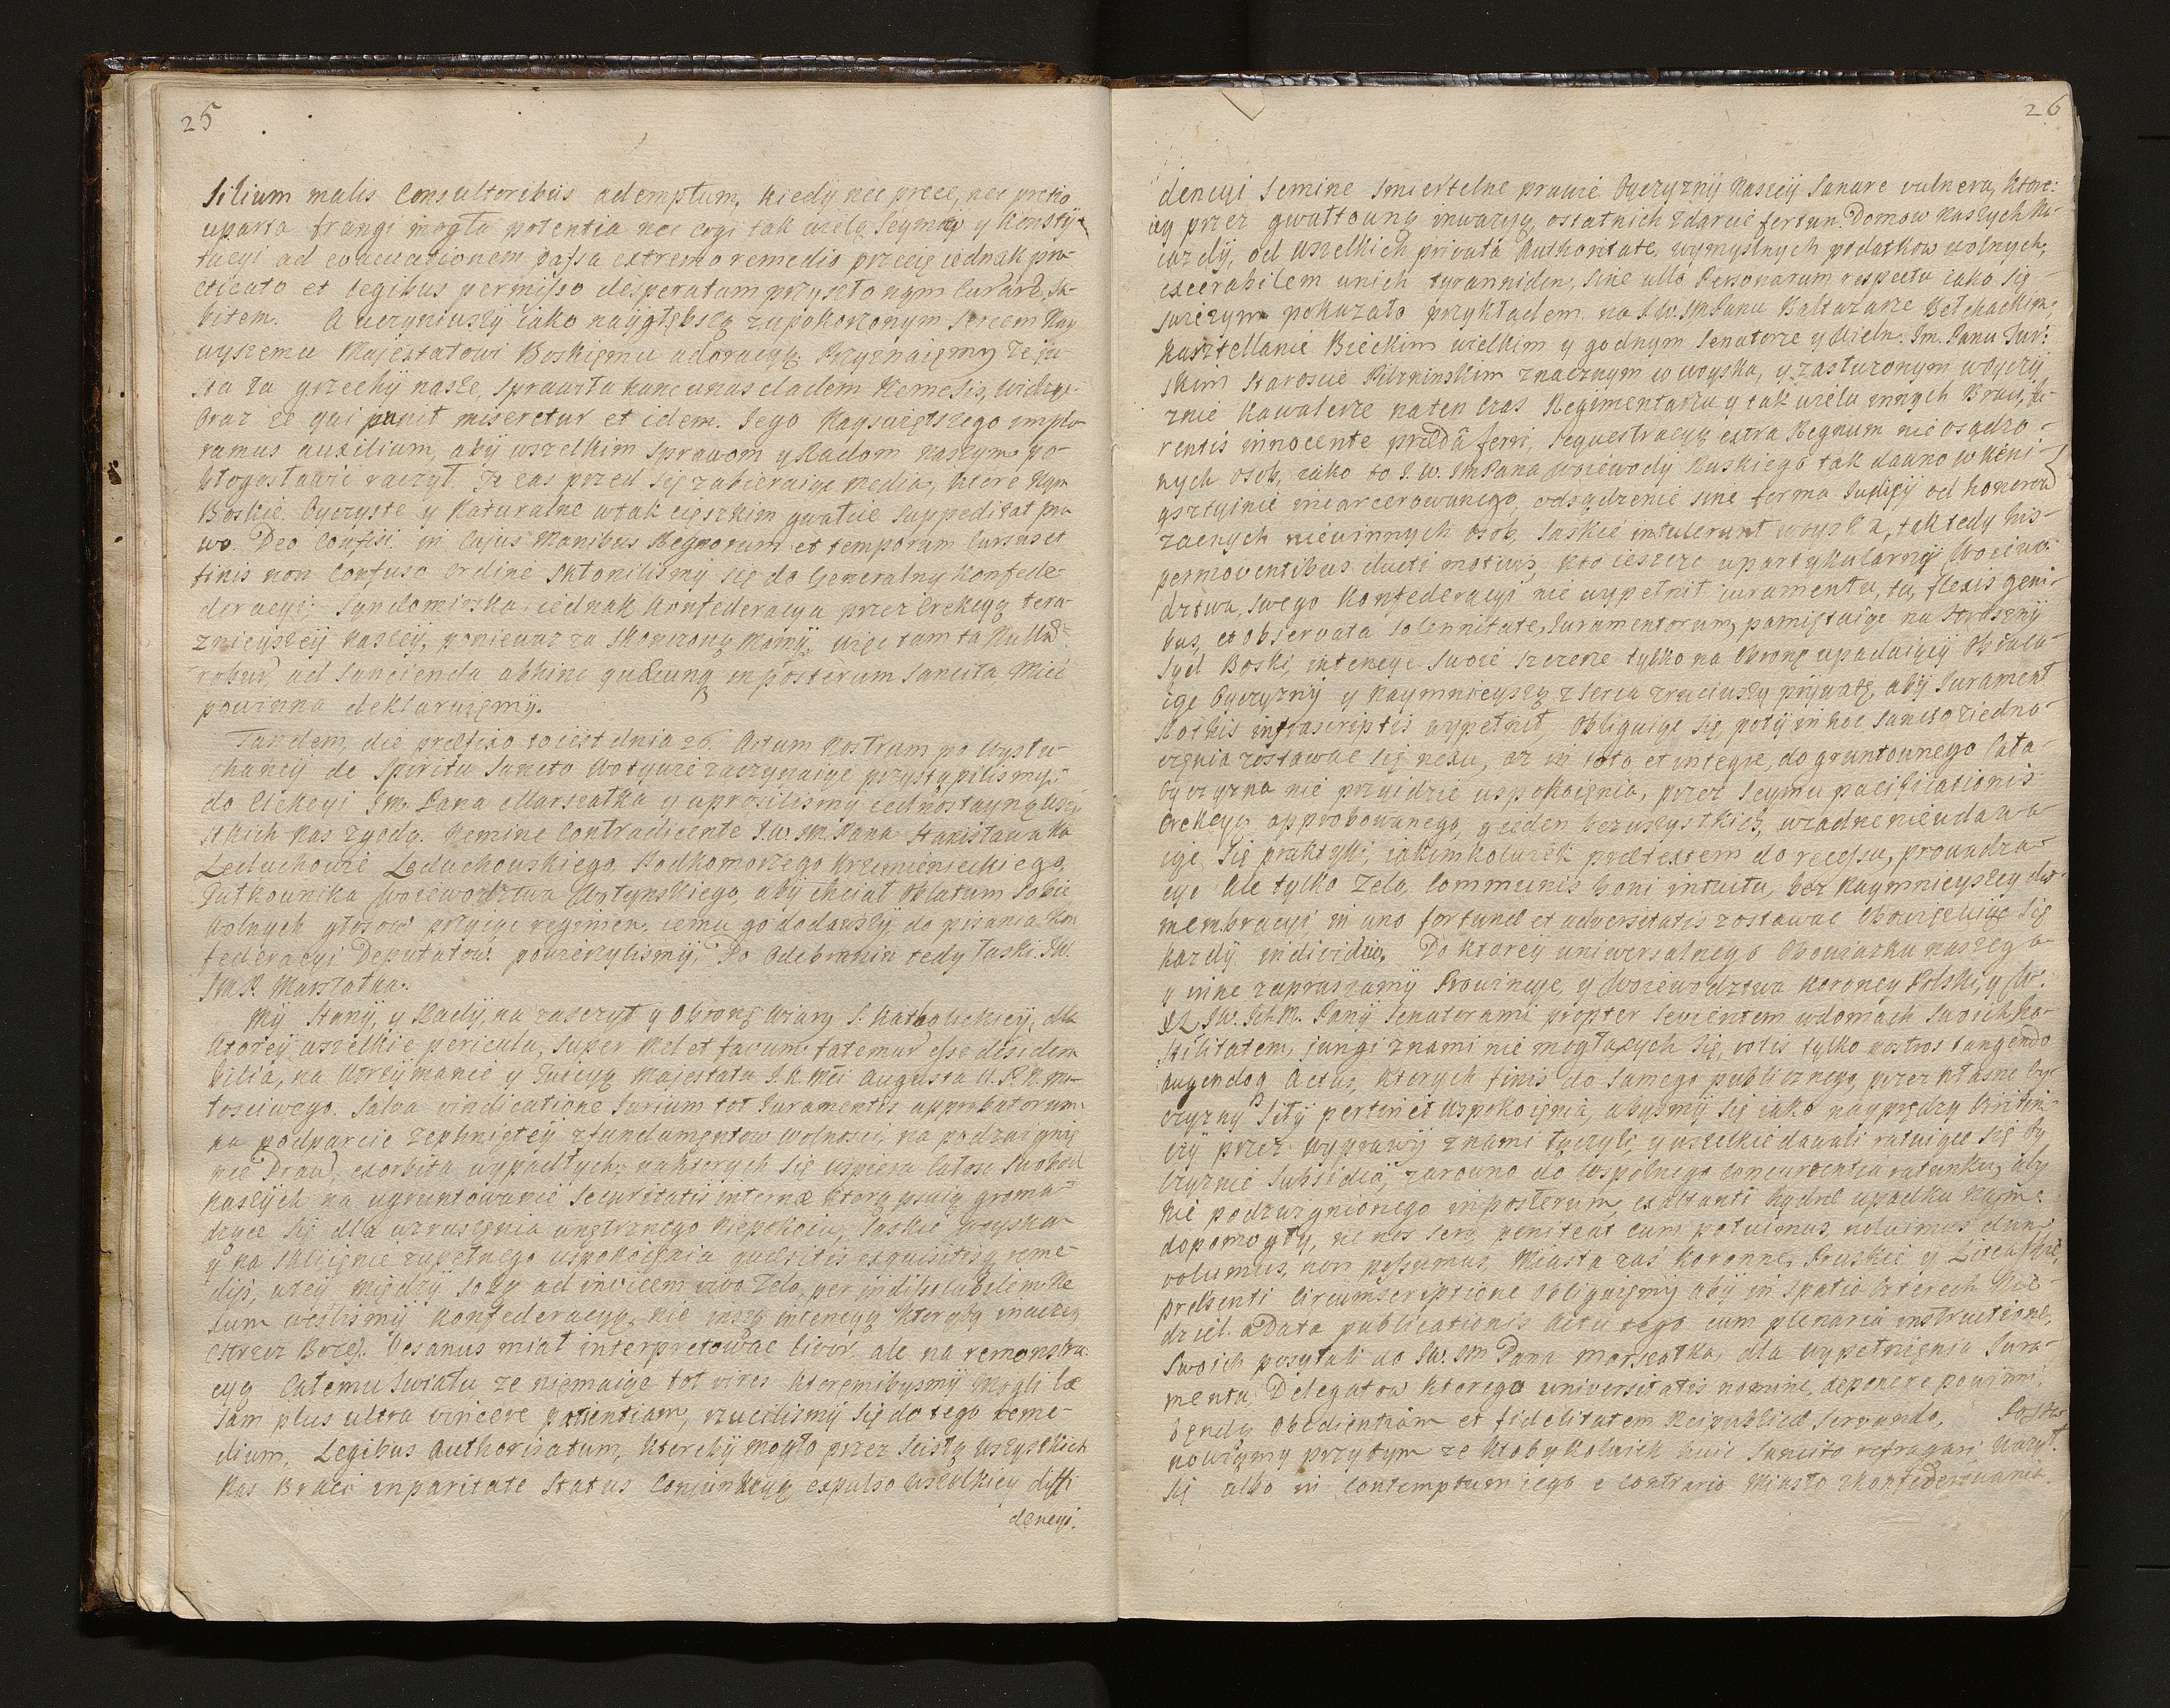 25
silium malis Consultoribus ademptum, kiedy nec prece, nec pretio
uparta frangi mogła potentia nec cogi tak wielą Seymow y Konsty-
tucyi ad evacuationem passa extremo remedio przecię iednak pra-
cticato et legibus permisso desperatam przyszło nam Curare sa-
lutem. A uczyniwszy iako naygłębszą z upokorzonym sercem Nay
wyszemu Majestatowi Boskiemu adoracyą. Przyznaięmy że ju-
sta za grzechy nasze, sprawiła hanc unas cladem Nemesis, widząc
oraz że qui punit miseretur et idem. Jego Nayswiętszego implo
ramus auxilium, aby wszelkim sprawom y Radom naszym po-
błogosławić raczył. Te zas przed się zabieraiąc media, ktore Nam
Boskie Oyczyste y Naturalne w tak cięszkim gwałcie suppeditat pra
wo. Deo Confisi in Cujus Manibus Regnorum et temporum Cursus et
finis non Confuso Ordine skłonilismy się do Generalny Konfede-
deracyi; Syndomirska iednak Konfederacya przez Erekcyą tera-
znieyszey naszey, ponieważ za skonczoną mamy, więc tam ta Nullum
robur ad sancienda abhinc quaecunq in posterum sancita Miec
powinna deklaruięmy.
Tandem die praefixo to iest dnia 26. Actum Nostrum po wysłu-
chaney de Spiritu Sancto Wotywie zaczynaiąc przystąpilismy
do Elekcyi Jm. Pana Marszałka y uprosilismy iednostayną wszy
stkich Nas zgodą. Nemine Contradicente J.W. JM. Pana Stanisława na
Leduchowie Leduchowskiego, Podkomorzego Krzemienieckiego,
Pułkownika Woiewodztwa Wołynskiego, aby chciał oblatum sobie
Wolnych głosow przyiąc regimen, iemu go dodawszy do pisania Kon
federacyi Deputatow powierzylismy, Po odebraniu tedy Laski JW.
Jm P. Marszałka.
My Stany, y Rady, na zaszczyt y Obronę Wiary S. Katholickiey, dla
ktorey wszelkie pericula, super mel et favum fatemur esse desidera
bilia, na utrzymanie y Tuicyą Majestatu J.K. Mci Augusta II. P. N. Mi-
łosciwego. Salva vindicatione Jurium tot Juramentis approbatorum
na podparcie zepchniętey z fundamentow wolnosci, na podzwignię
nie Praw, ex orbita wypadłych, na ktorych się wspiera całosc swobod
naszych na ugruntowanie Securitatis internae ktorą psuią groma-
dząc się dla wzruszęnia wnętrznego niepokoiu, Saskie Woyska
y na sklęienie zupełnego uspokoięnia quaesitis exquisitisq reme-
dys, tey między sobą ad invicem vivo Zelo, per indissolubilem ne
xum wesslismy Konfederacyą, nie inszą intencyą ktorąby inaczey
(strzez Boże) Vesanus miał interpretowac livor, ale na remonstra
cyą Całemu Swiatu że niemaiąc tot vires ktoremibysmy mogli lae
sam plus ultra vincere patientiam, rzucilismy się do tego reme-
dium, Legibus Authorisatum, ktoreby mogło przez scisłą wszystkich
Nas Braci in paritate Status Conjunkcyą expulso wszelkiey diffi
dencyi.
26
dencyi Semine smiertelne prawie Oyczyzny Naszey Sanare vulnera, ktore:
cy przez gwałtowną inwazyą, ostatnich zdarcie fortun. Domow naszych na-
iazdy, od wszelkich privata Authoritate wymyslnych podatkow wolnych,
execrabilem wnich tyrannidem, sine ullo Personarum respectu iako się
swieżym pokazało przykładem na J.W. Jm Panu Baltazarze Bełchackim,
Kasztellanie Bieckim wielkim y godnym Senatorze y Wieln: Jm. Panu Tur:
skim Staroscie Pilzninskim znacznym w woysku, y zasłużonym w Oyczy
znie Kawalerze na ten Czas Regimentarzu y tak wielu innych Braci, fu-
rentis innocente praeda ferri, sequestracyą extra Regnum nie osądzo-
nych osob, iako to J.W. Jm Pana Woiewody Ruskiego tak dawno w Keni-
gsztyinie incarcerowanego, odsądzenie sine forma Judicij od honorow
zacnych niewinnych osob, Saskie intulerunt woyska, tak tedy his-
permoventibus ducti motivis, kto ieszcze upartykularnyi Woiewo-
dztwa, swego Konfederacyi nie wypełnił iuramentu, tu, flexis geni-
bus, et observata solennitate, Juramentorum, pamiętaiąc na straszny
Sąd Boski, intencyę swoie szczerze tylko na obronę upadaiącey obrala-
iąc Oyczyzny y naymnieyszą z serca zruciwszy prywatę, aby Jurament
Nobis infrascriptis wypełnił, obliguiąc się, poty in hoc sancto ziedno-
częnia zostawac się nexu, aż in toto et integre, do gruntownego Cała
Oyczyzna nie przyidzie uspokoięnia, przez Seymu pacificationis
Erekcyą approbowanego, y ieden bez wszystkich, w żadne nie wdawa-
iąc się praktyki, iakimkolwiek praetextem do recessu, prowadzą-
ce Ale tylko Zelo Communis boni intuitu, bez naymnieyszey dis-
membracyi in una fortunae et adversitatis zostawac Obowięzuiąc się
każdy individue. Do ktorey uniwersalnego Obowiązku naszego
y inne zapraszamy Prowincye, y Woiewodztwa Koronęy Polski, y W.
XL JW. Ich M. Pany Senatorami propter Sevientem w domach swoich ho-
stilitatem, jungi z nami nie mogłacych się, votis tylko nostros tangendo
augendoq Actus, ktorych finis do samego publicznego, przez własne Oy-
czyzny siły pertinet uspokoięnia, abysmy się iako nayprędzy viritim
czy przez wyprawy z nami łączyli, y wszelkie dawali ratuiącę się Oy
czyznie Subsidia, zarowno do wspolnego concurrentia ratunku, aby
nie podzwignionego in posterum, exultanti hydrae upadku Nam
dopomogły, ne nos sera peniteat cum potuimus, noluimus dum
volumus, non possumus, Miasta zas Koronne, Pruskie y Litewskie,
praesenti Circumscriptione obliguięmy aby in spatio czterech nie-
dziel. a Data publicationis Actu tego cum plenaria instructione,
Swoich posyłali do JW. Jm Pana Marszałka, dla wypełnięnia Jura-
mentu Delegatow ktorego universitatis nomine, deponere powinni
będą Obedientiam et fidelitatem Reipublicae servando. Posta-
nowięmy przytym że ktoby kolwiek huic Sancito refragari ważył
się albo in Contemptum iego e Contrario Miasto zkonfederowania